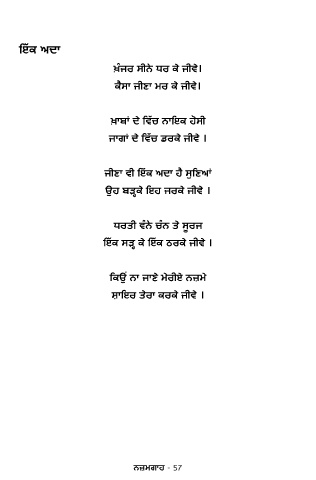 ਇੱਕ ਅਦਾ
ਖ਼ੰਜਰ ਸੀਨੇ ਧਰ ਕੇ ਜੀਵੇ।
ਕੈਸਾ ਜੀਣਾ ਮਰ ਕੇ ਜੀਵੇ।
ਖ਼ਾਬਾਂ ਦੇ ਵਿੱਚ ਨਾਇਕ ਹੋਸੀ
ਜਾਗਾਂ ਦੇ ਵਿੱਚ ਡਰਕੇ ਜੀਵੇ ।
ਜੀਣਾ ਵੀ ਇੱਕ ਅਦਾ ਹੈ ਸੁਣਿਆਂ
ਉਹ ਬੜ੍ਹਕੇ ਇਹ ਜਰਕੇ ਜੀਵੇ ।
ਧਰਤੀ ਵੰਨੇ ਚੰਨ ਤੇ ਸੂਰਜ
ਇੱਕ ਸੜ੍ਹ ਕੇ ਇੱਕ ਠਰਕੇ ਜੀਵੇ ।
ਕਿਉਂ ਨਾ ਜਾਣੇ ਮੇਰੀਏ ਨਜ਼ਮੇ
ਸ਼ਾਇਰ ਤੇਰਾ ਕਰਕੇ ਜੀਵੇ ।
ਨਜ਼ਮਗਾਹ - 57